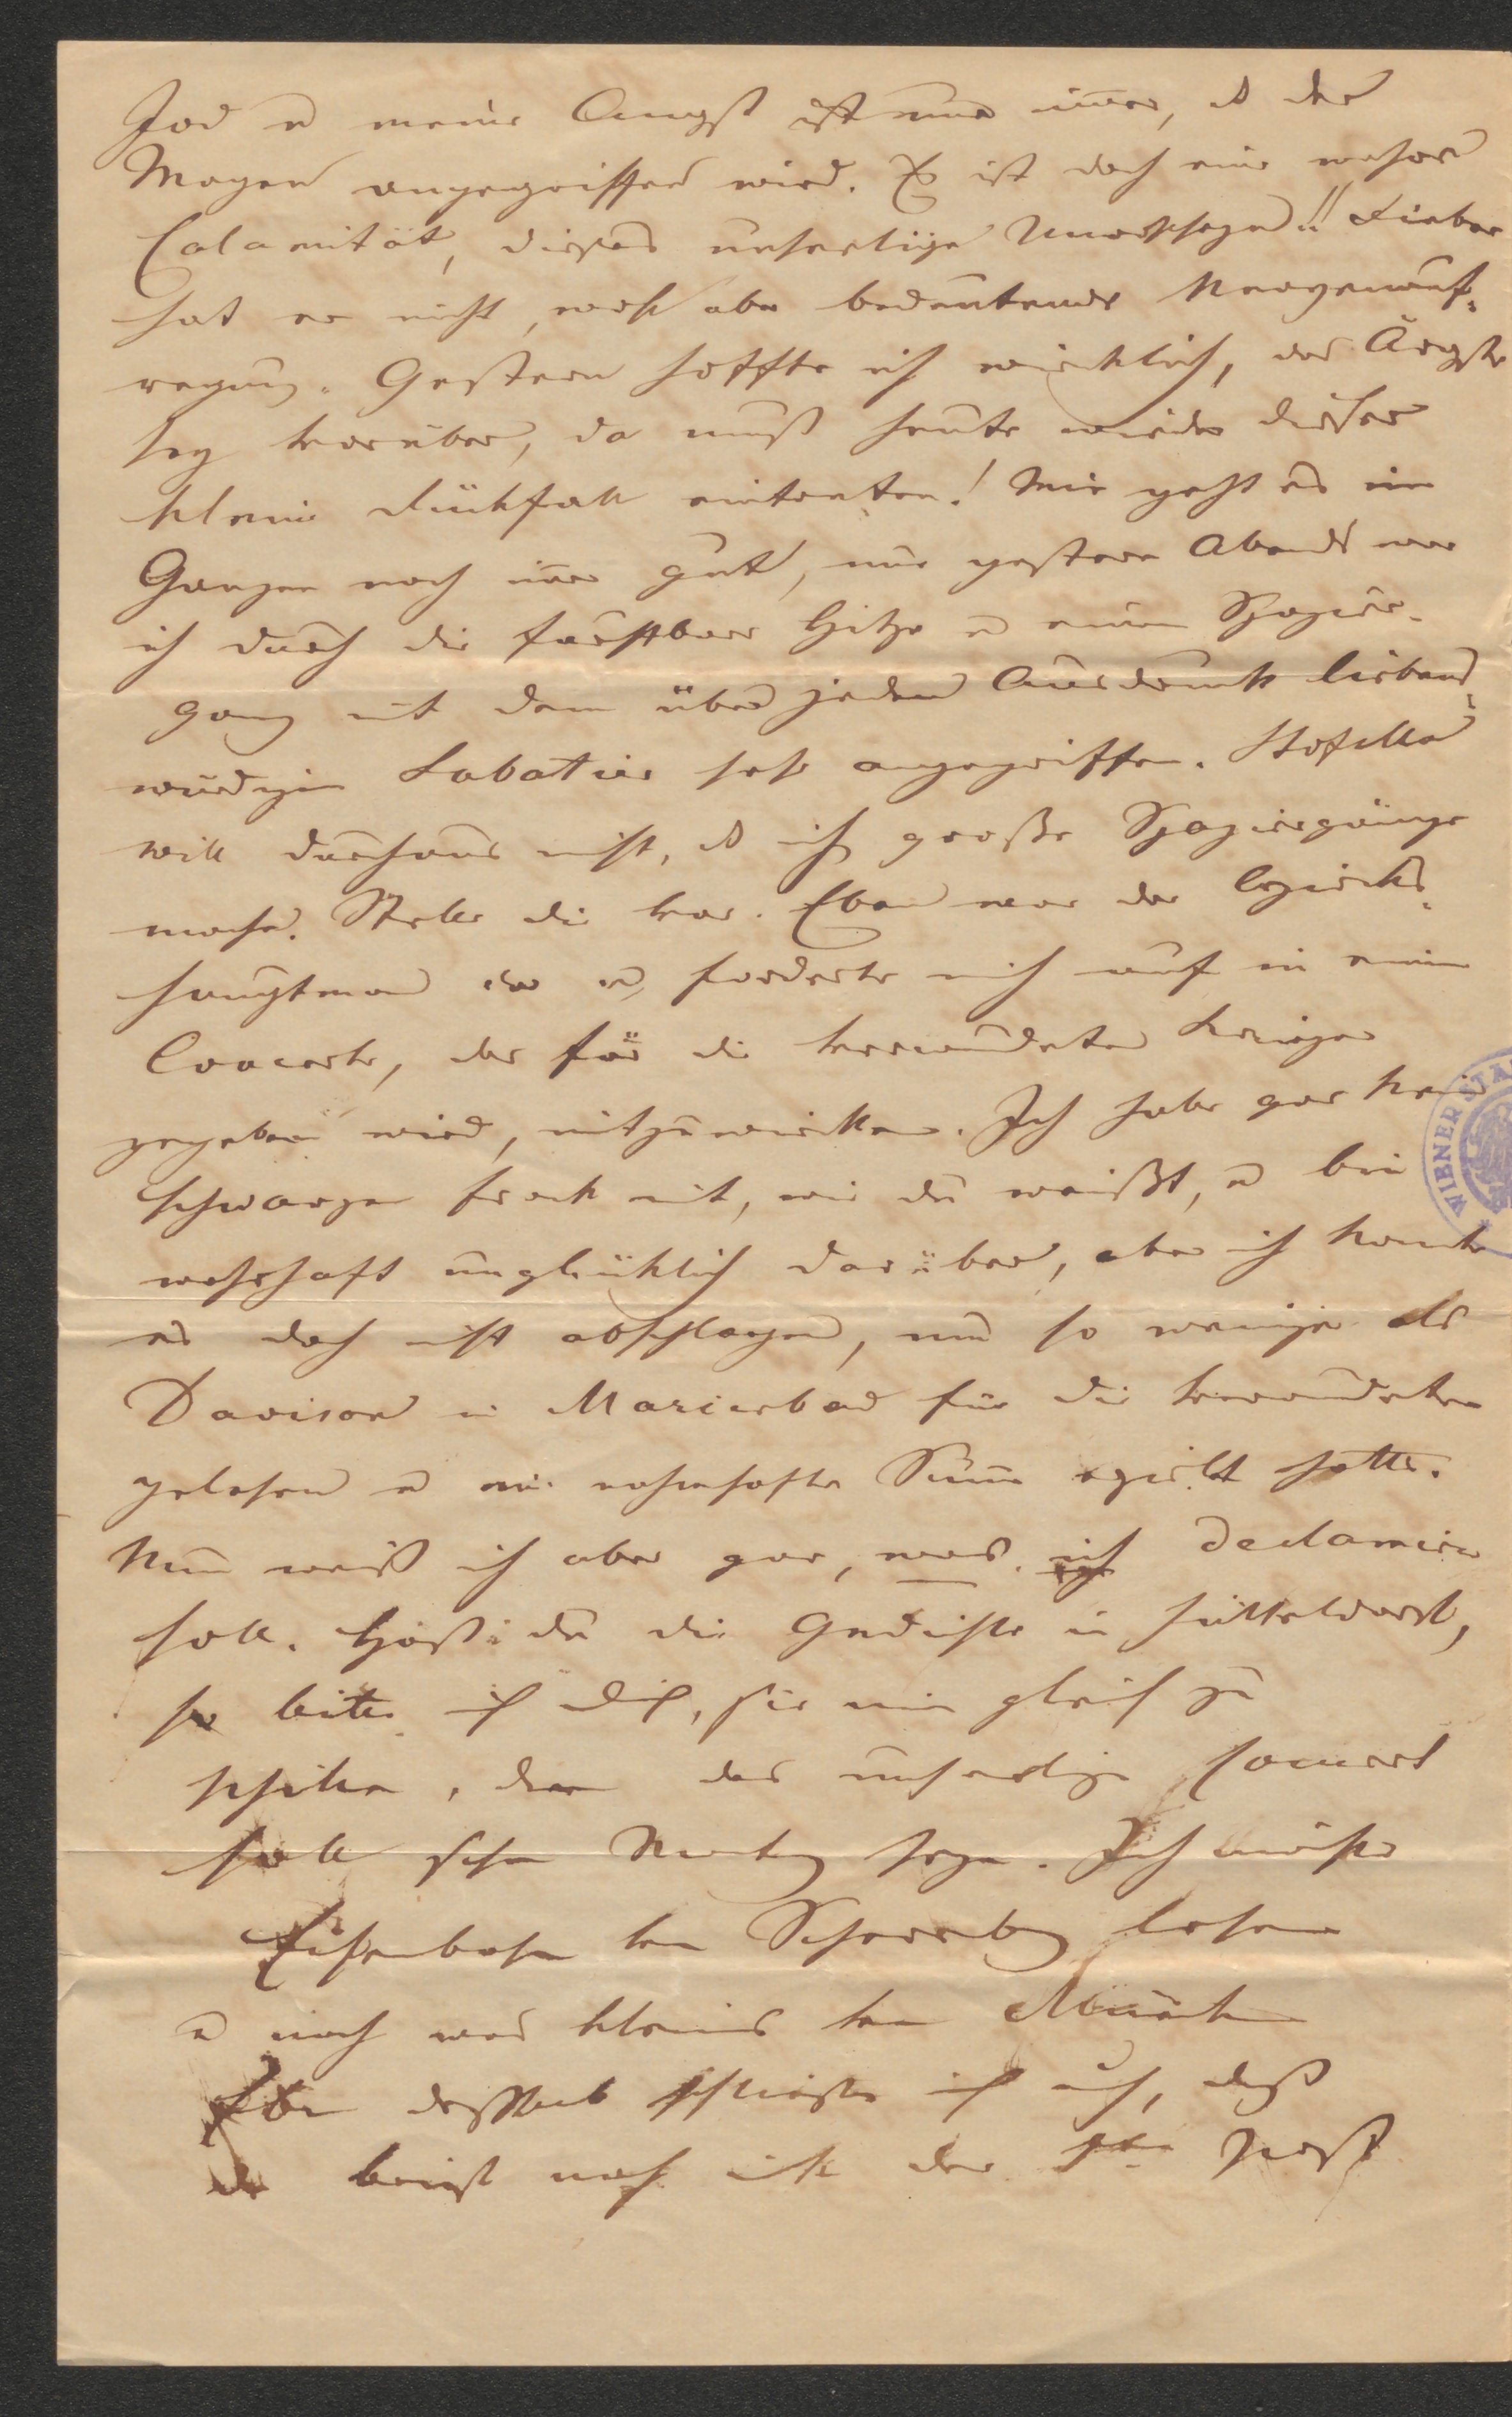 Jod u meine Angst ist nur im̅er, ds der
Magen angegriffen wird. Es ist doch eine wahre
Calamität, dieses unselige Unwohlseyn!! Fieber
hat er nicht, wohl aber bedeutende Nervenauf-
regung. Gestern hoffte ich wirklich, das Ärgste
sey vorüber, da muß heute wieder dieser
kleine Rückfall eintreten! Mir geht es im
Ganzen noch im̅er gut, nur gestern Abends war
ich durch die furchtbare Hitze u einen Spazier-
gang mit dem über jeden Ausdruck liebens-
würdigen Sabatier sehr angegriffen. Stofella
will durchaus nicht, ds ich große Spaziergänge
mache. Stelle dir vor. Eben war der Bezirks-
hauptman da u forderte mich auf in einem
Concerte, das für die verwundeten Krieger
gegeben wird, mitzuwirken. Ich habe gar kein
schwarzen Frack mit, wie du weißt, u bin
wahrhaft unglücklich darüber, aber ich konnte
es doch nicht abschlagen, um so weniger als
Davison in Marienbad für die Verwundeten
gelesen u eine nahmhafte Sum̅e erzielt hatte.
Nun weiß ich aber gar, was ich declamiren
soll. Hast du die Gedichte in Hütteldorf,
so bitte ich dich, sie mir gleich zu
schicken, den das unselige Concert
soll schon Montag seyn. Ich möchte
Eisenbahn von Scherenberg lesen
u noch was kleines von
Eben deßhalb schließe ich auch, daß
der Brief noch mit der Post